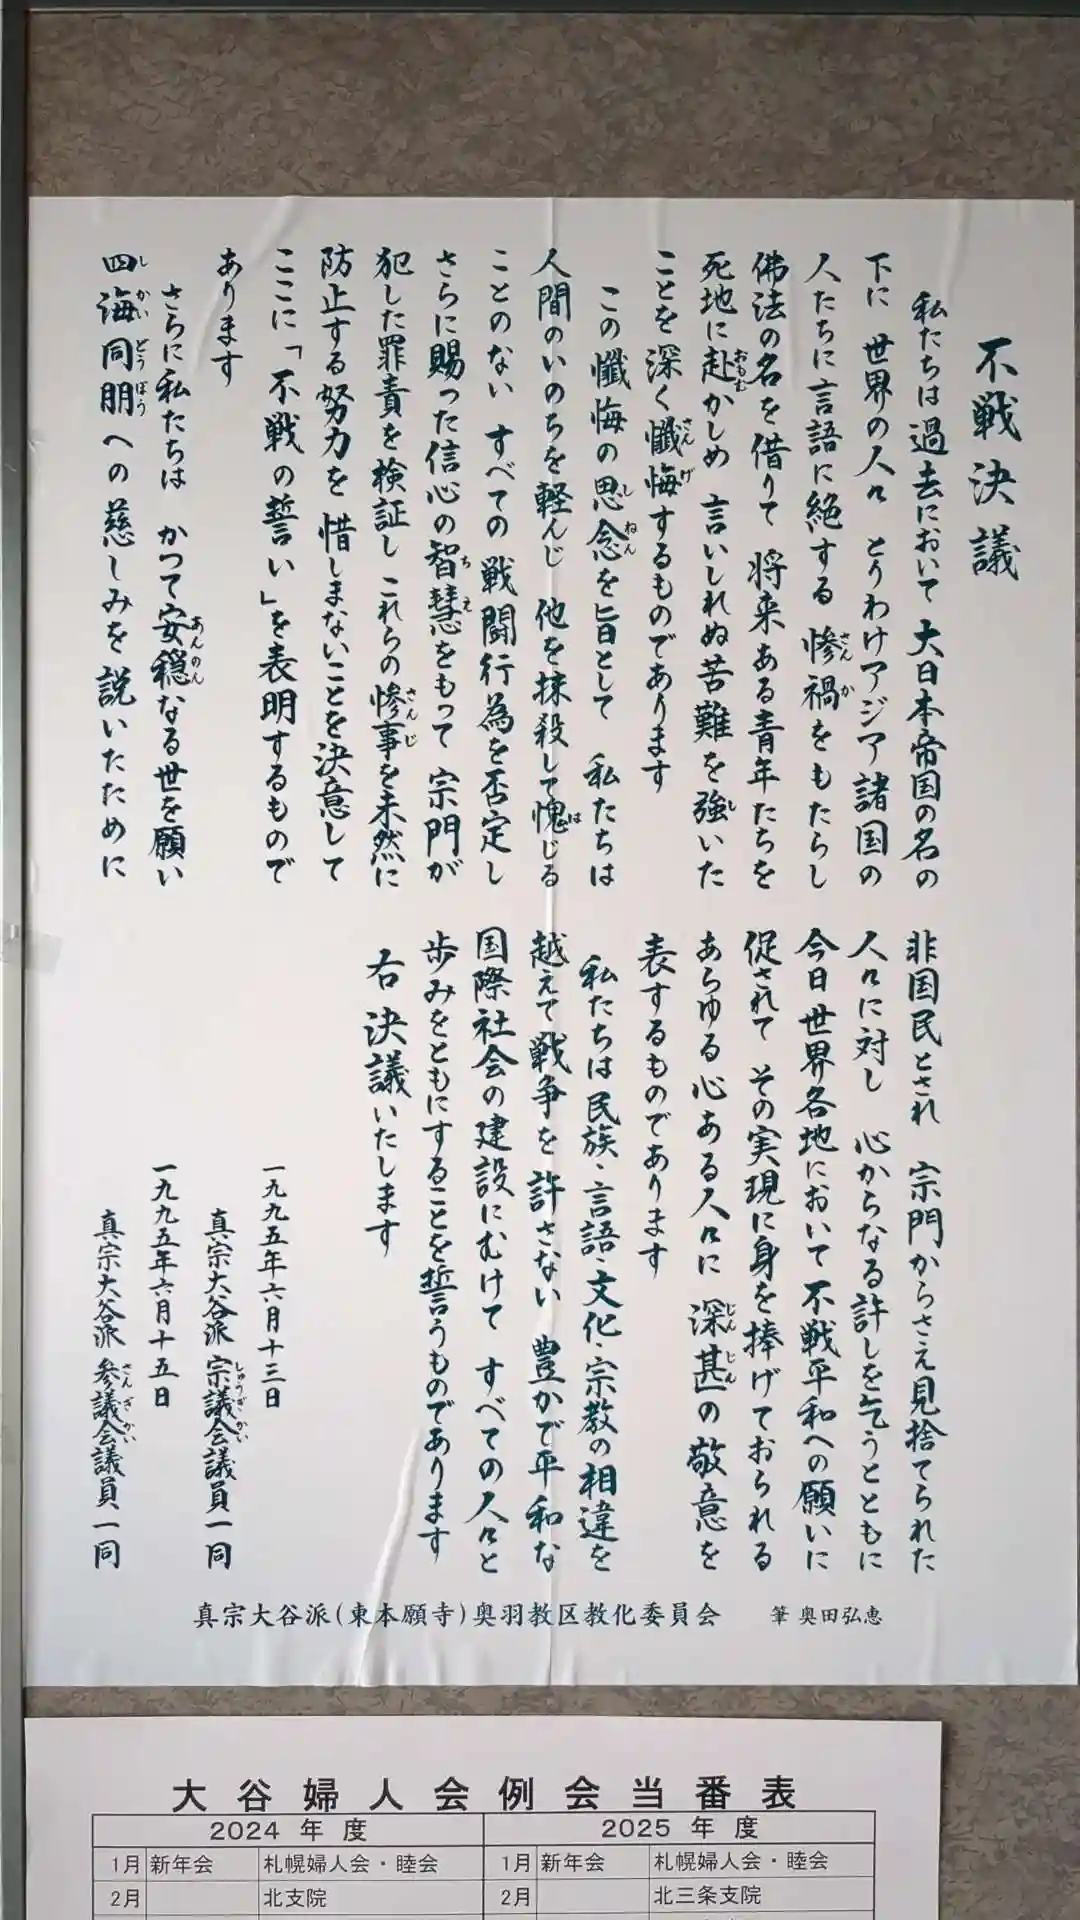 不戦決議
私たちは過去において 大日本帝国の名の
下に 世界の人々 とりわけアジア諸国の
人たちに言語に絶する 惨禍をもたらし
佛法の名を借りて 将来ある青年たちを
死地に赴かしめ 言いしれぬ苦難を強いた
ことを深く懺悔するものであります
この懺悔の思念を旨として 私たちは
人間のいのちを軽んじ 他を抹殺して愧じる
ことのない すべての戦闘行為を否定し
さらに賜った信心の智慧をもって 宗門が
犯した罪責を検証し これらの惨事を未然に
防止する努力を 惜しまないことを決意して
ここに「不戦の誓い」を表明するもので
あります
さらに私たちは かつて安穏なる世を願い
四海同朋への慈しみを説いたために
非国民とされ 宗門からさえ見捨てられた
人々に対し 心からなる許しを乞うとともに
今日世界各地において不戦平和への願いに
促されて その実現に身を捧げておられる
あらゆる心ある人々に 深甚の敬意を
表するものであります
私たちは民族・言語・文化・宗教の相違を
越えて戦争を 許さない 豊かで平和な
国際社会の建設にむけて すべての人々と
歩みをともにすることを誓うものであります
右 決議いたします
一九九五年六月十三日
真宗大谷派 宗議会議員一同
一九九五年六月十五日
真宗大谷派 参議会議員一同
真宗大谷派(東本願寺)奥羽教区教化委員会 筆 奥田弘恵
大谷婦人会例会当番表
2024 年 度 2025 年 度
1月 新年会 札幌婦人会・睦会 1月 新年会 札幌婦人会・睦会
2月 北支院 2月 北三条支院